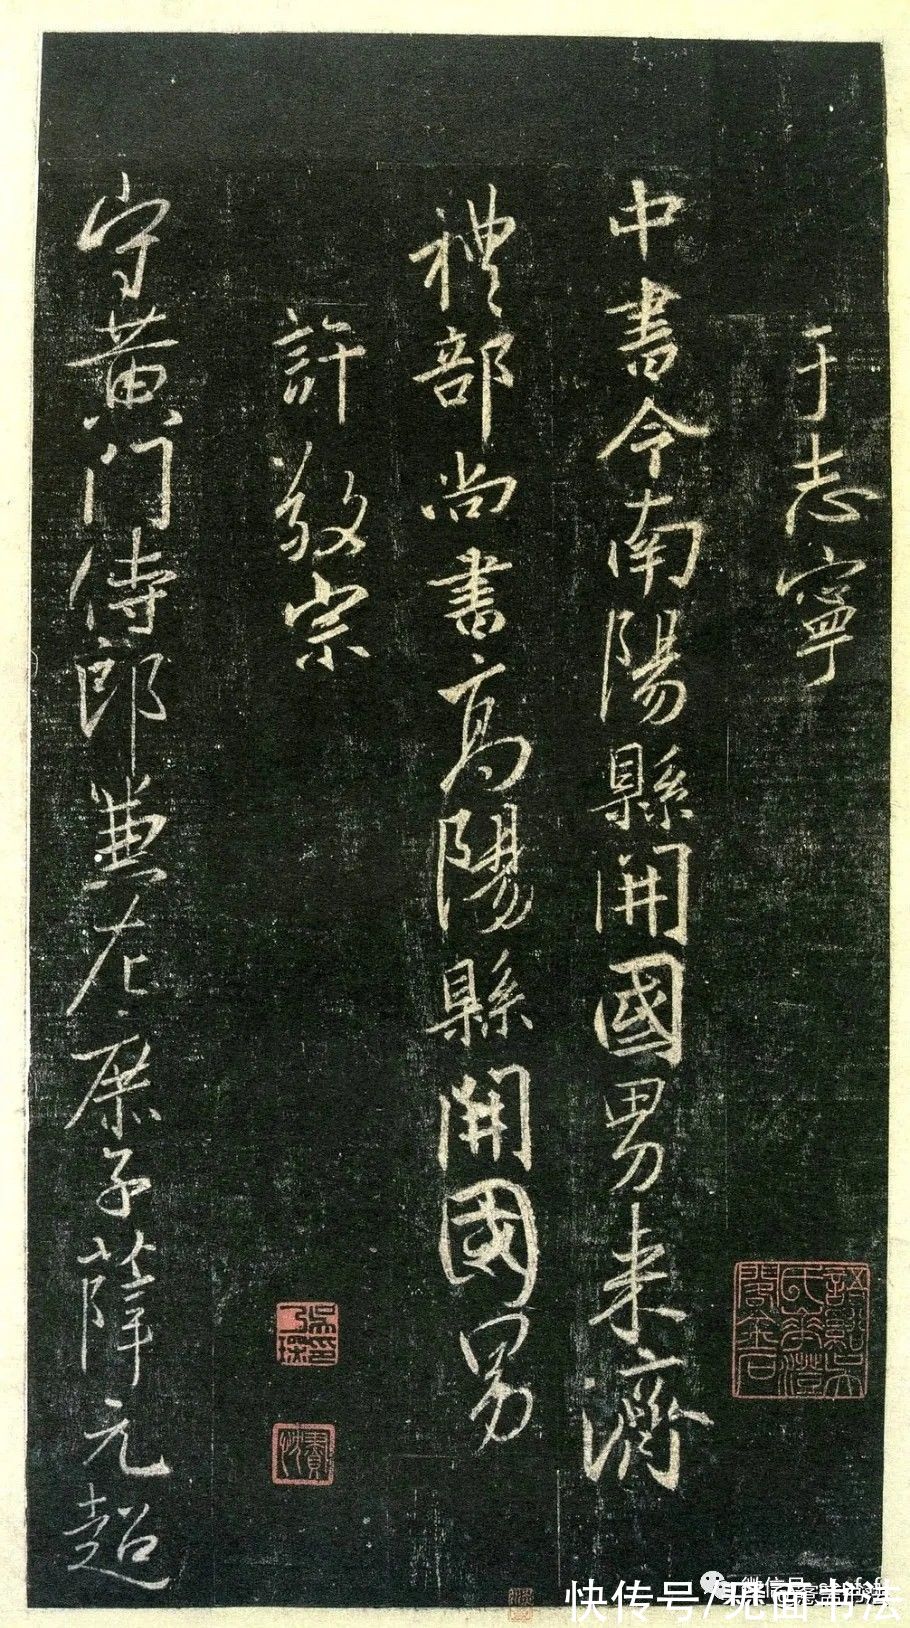 于志寧
中書令南陽縣開國男来濟
禮部尚書高陽縣開國男
許敬宗
守黄門侍郎兼左庶子薛元超
快传号/见面书法